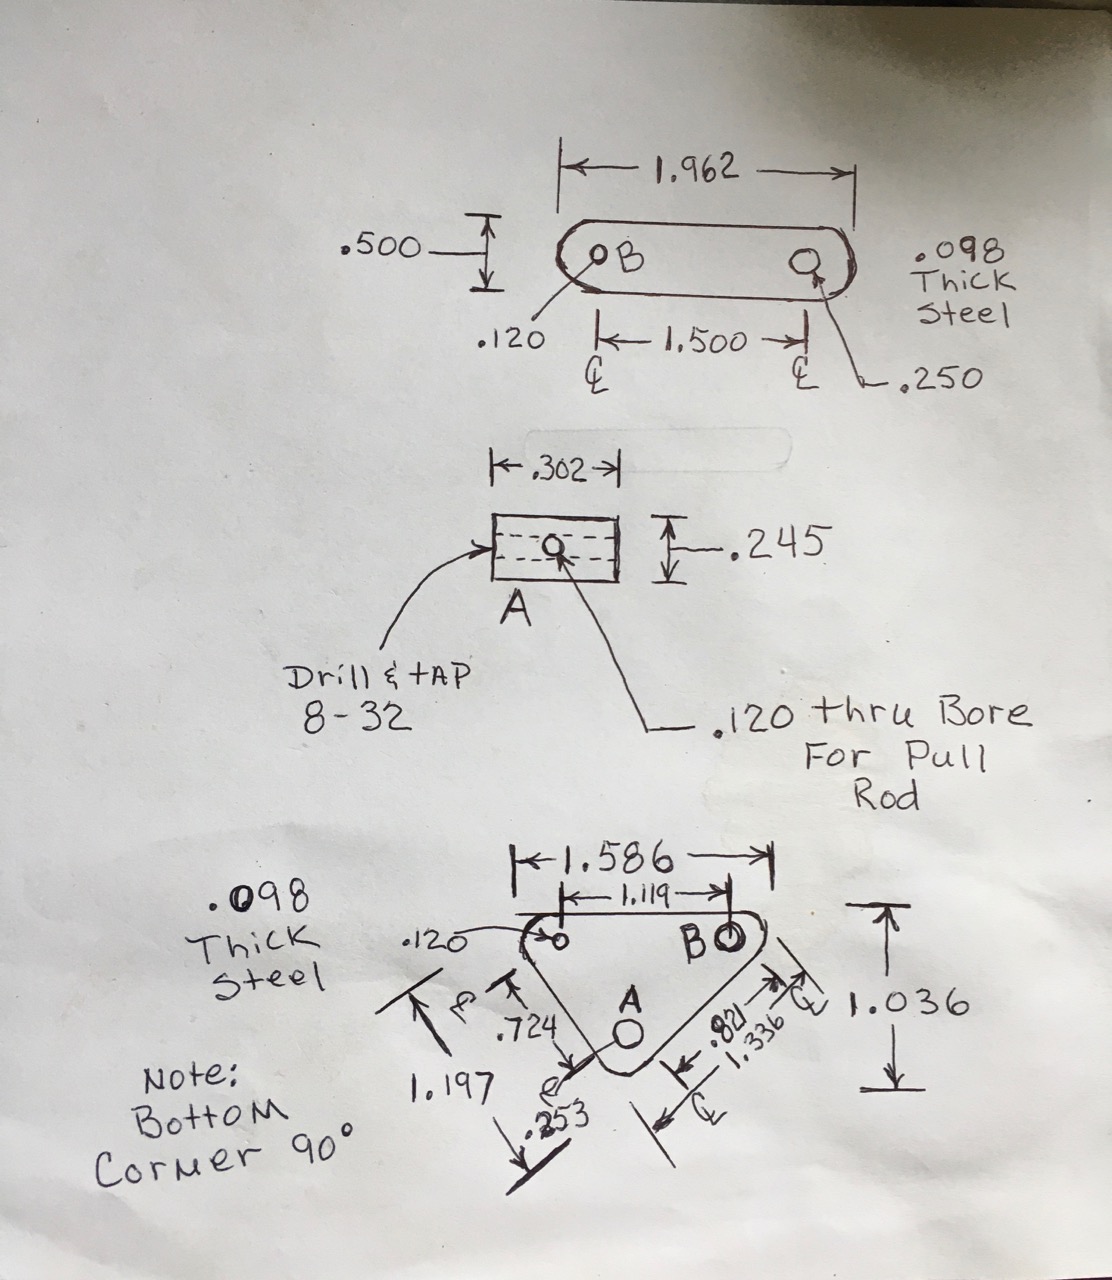 1.962
.500
B
.098
Thick
Steel
.120
1.500
℄ ℄
.250
.302
.245
A
Drill & tAP
8-32
.120 thru Bore
For Pull
Rod
1.586
1.119
.098
Thick
Steel
.120
B
A
℄
.724
.821
1.336
℄
1.036
1.197
℄
.253
℄
Note:
Bottom
Corner 90°